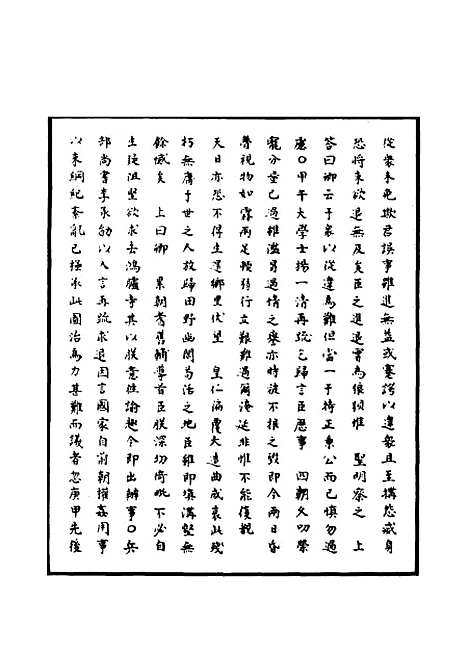 從衆未免欺君誤事雖進無益或蹇諤以違衆且至搆怨戚身
恐将来欲退無及矣臣之進退實為狼狽惟　聖明察之　上
答曰卿云于衆以從違為難但當一于持正秉公而已慎勿過
慮〇甲午大學士楊一清再疏乞歸言臣歷事　四朝久叨榮
寵分量已過雖濫男過情之舉亦時被不根之毀即今兩目昏
瞢視物如霧兩足頑痹行立艱難過爾淹延非惟不能復覩
天日亦恐不得生還鄉里伏望　皇仁徧覆大造曲成哀此殘
朽無庸于世之人放歸田野幽閒苟活之地臣雖即填溝壑無
餘憾矣　上曰卿　累朝耆舊輔導首臣朕深切倚毗不必自
生疑沮堅欲求去鴻臚寺其以朕意徃諭趣令即出辦事〇兵
部尚書李承勛以人言再疏求退因言國家自前朝權姦用事
以来綱紀紊亂已極求此圖治為力甚難而議者忽庚甲先後